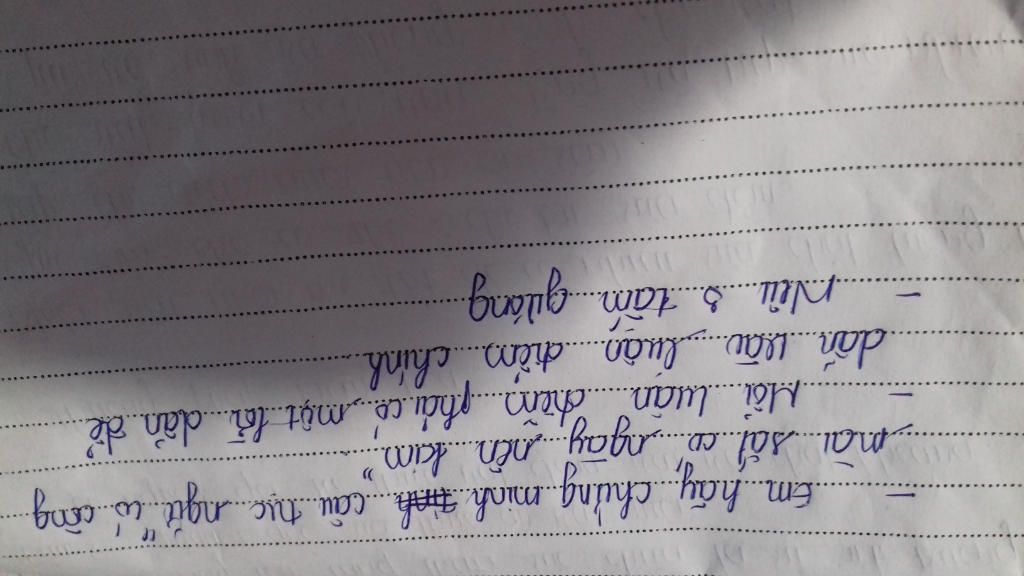 - Em hãy chứng minh câu tục ngữ "có công
mài sắt, có ngày nên kim"
- Mỗi luận điểm phải có một lời dẫn để
dẫn vào luận điểm chính
- Nêu 3 tấm gương